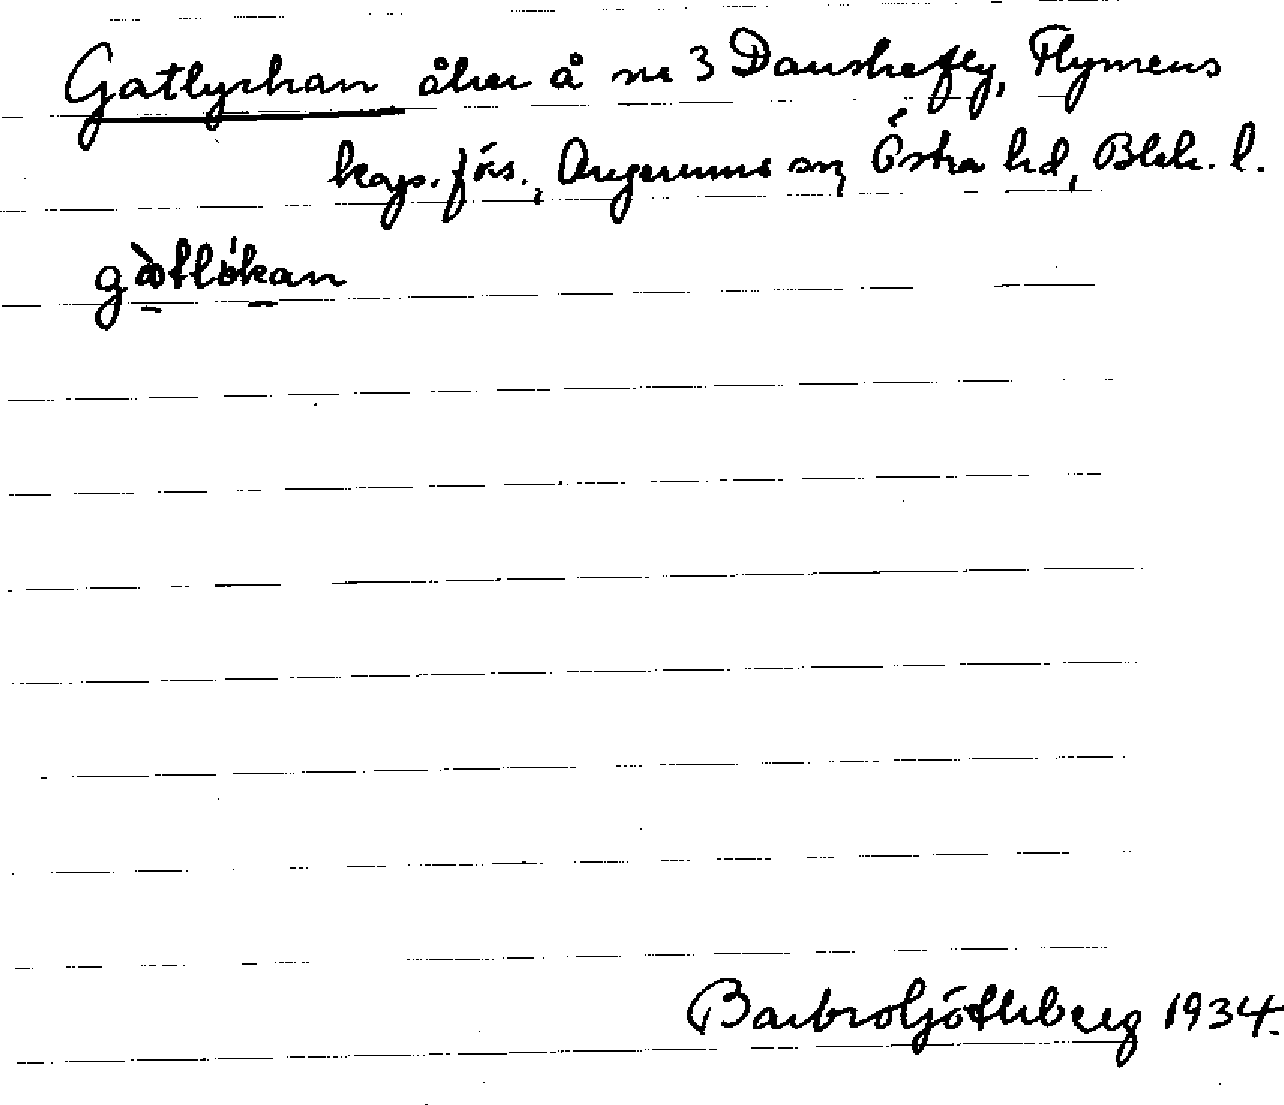 Gatlyckan åker å nr 3 Danskefly, Flymens
kap. förs., Augerums sn, Östra hd, Blek. l.
Barbro Söderberg 1934.